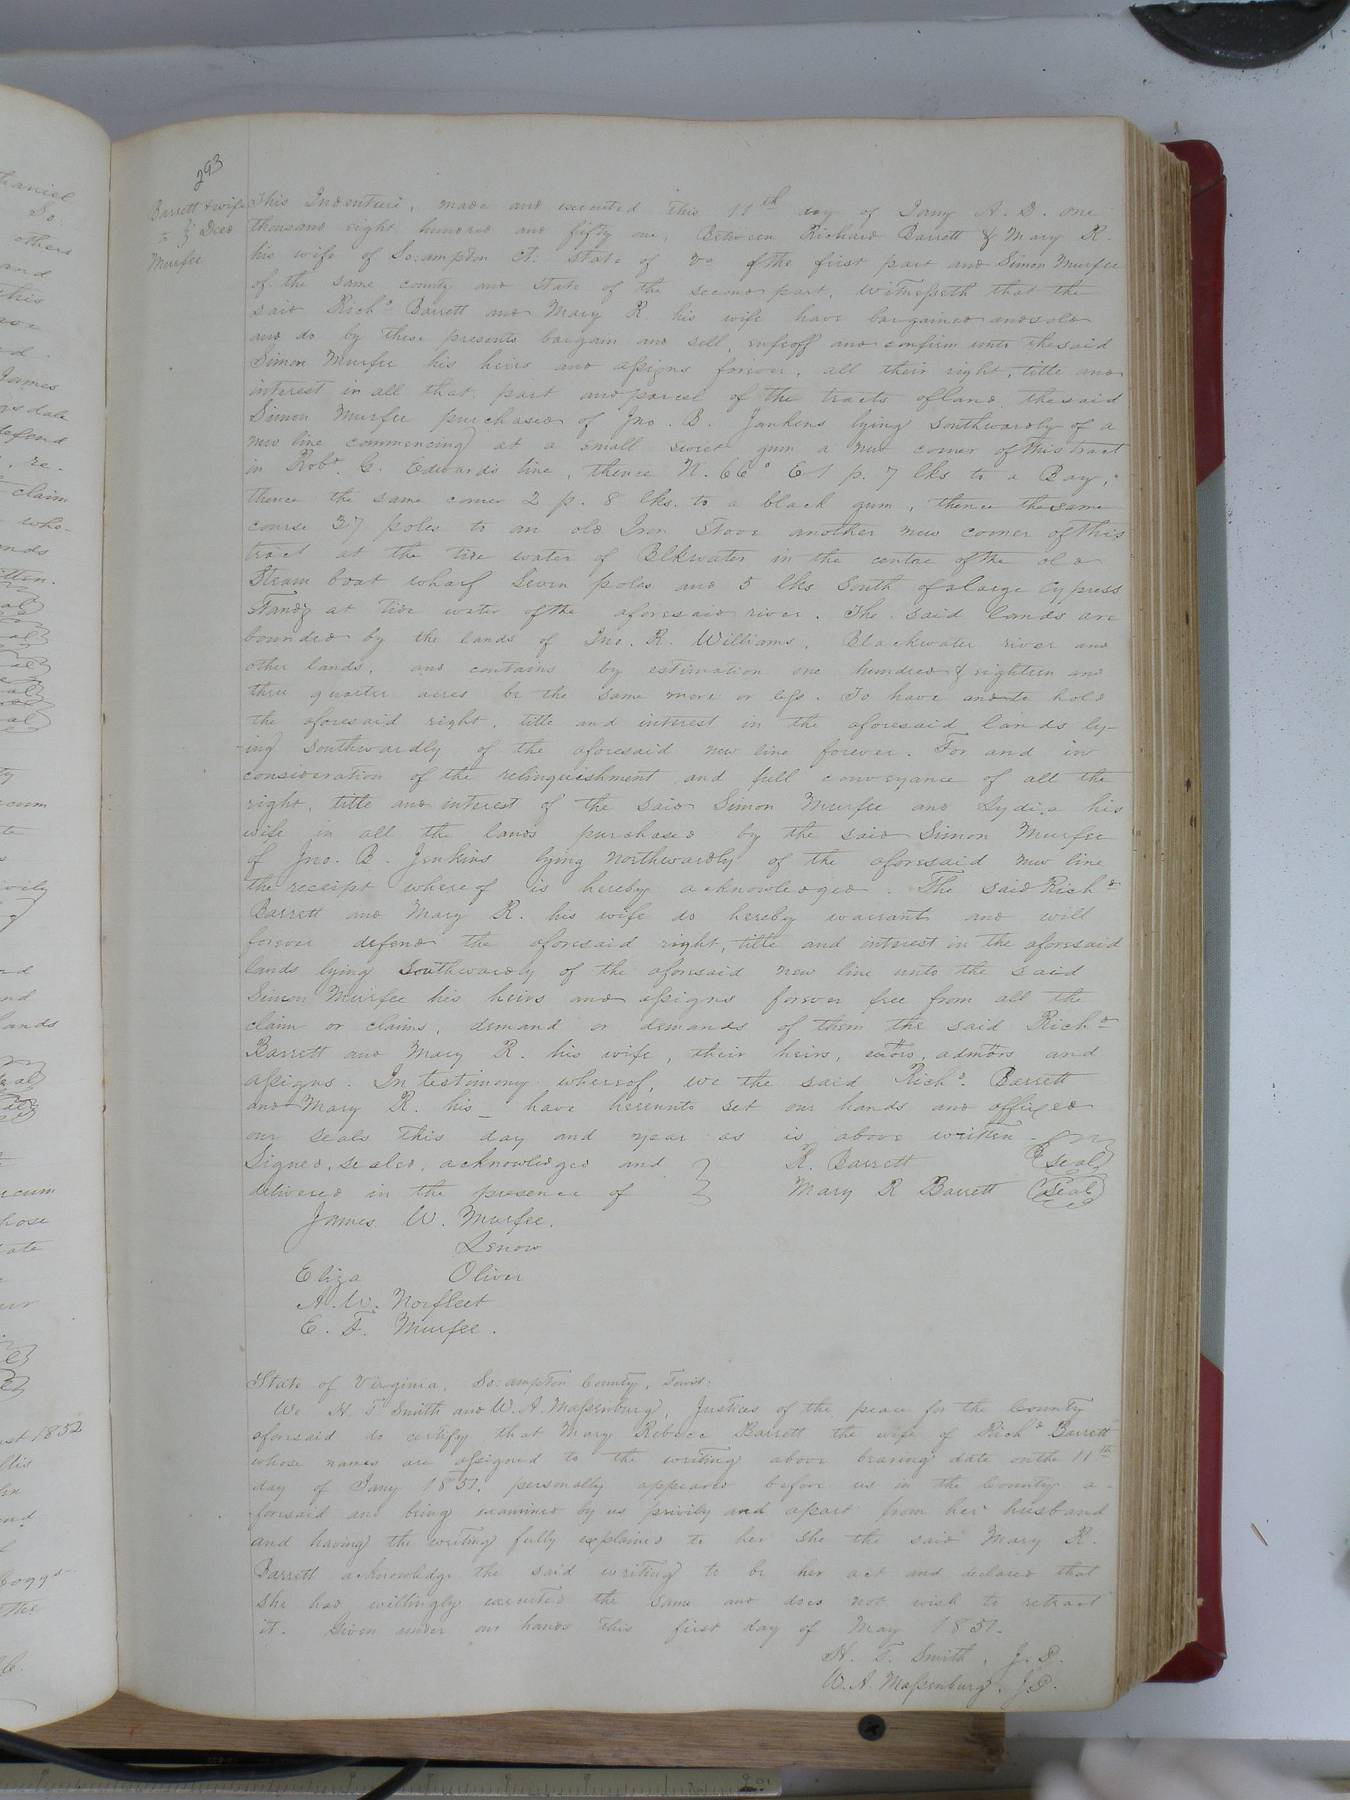 293
Barrett & wife
to } Deed
Murfee
This Indenture, made and executed this 11th day of Jany A. D. one
thousand eight hundred and fifty one, Between Richard Barrett & Mary R.
his wife of So:ampton Ct: State of Va of the first part and Simon Murfee
of the same county and State of the second part, Witnesseth that the
said Richd Barrett and Mary R. his wife have bargained and sold
and do by these presents bargain and sell, enfeoff and confirm unto the said
Simon Murfee his heirs and assigns forever, all their right, title and
interest in all that part and parcel of the tracts of land the said
Simon Murfee purchased of Jno. B. Jenkens lying Southwardly of a
new line commencing at a small sweet gum a new corner of this tract
in Robt. G. Edwards line, thence N. 66° E 1 p. 7 lks to a Bay,
thence the same corner 2 p. 8 lks. to a black gum, thence the same
course 37 poles to an old Iron Stove another new corner of this
tract at the tide water of Blkwater in the centre of the old
Steam boat wharf Seven poles and 5 lks South of a large Cypress
Standg at tide water of the aforesaid river. The said lands are
bounded by the lands of Jno. R. Williams, Blackwater river and
other lands, and contains by estimation one hundred & eighteen and
three quarter acres be the same more or less. To have and to hold
the aforesaid right, title and interest in the aforesaid lands ly-
-ing Southwardly of the aforesaid new line forever. For and in
consideration of the relinquishment and full conveyance of all the
right, title and interest of the said Simon Murfee and Lydia his
wife in all the lands purchased by the said Simon Murfee
of Jno. B. Jenkins lying northwardly of the aforesaid new line
the receipt whereof is hereby acknowledged. The said Richd
Barrett and Mary R. his wife do hereby warrant and will
forever defend the aforesaid right, title and interest in the aforesaid
lands lying Southwardly of the aforesaid new line unto the said
Simon Murfee his heirs and assigns forever free from all the
claim or claims, demand or demands of them the said Richd
Barrett and Mary R. his wife, their heirs, exors, admors and
assigns. In testimony whereof, we the said Richd. Barrett
and Mary R. his _ have hereunto set our hands and affixed
our seals this day and year as is above written.
Signed, sealed, acknowledged and } R. Barrett (Seal)
delivered in the presence of } Mary R Barrett (Seal)
James W. Murfee.
Lenow
Eliza Oliver
A. W. Norfleet
E. F. Murfee.
State of Virginia, So:ampton County, Towit:
We H. T. Smith and W. A. Massenburg, Justices of the peace for the County
aforesaid do certify that Mary Rebecc Barrett the wife of Richd Barrett
whose names are assigned to the writing above bearing date on the 11th
day of Jany 1851. personally appeared before us in the County a-
foresaid and being examined by us privily and apart from her husband
and having the writing fully explained to her she the said Mary R.
Barrett acknowledge the said writing to be her act and declared that
she had willingly executed the same and does not wish to retract
it. Given under our hands this first day of May 1851.
H. T. Smith, J. P.
W. A. Massenburg, J. P.